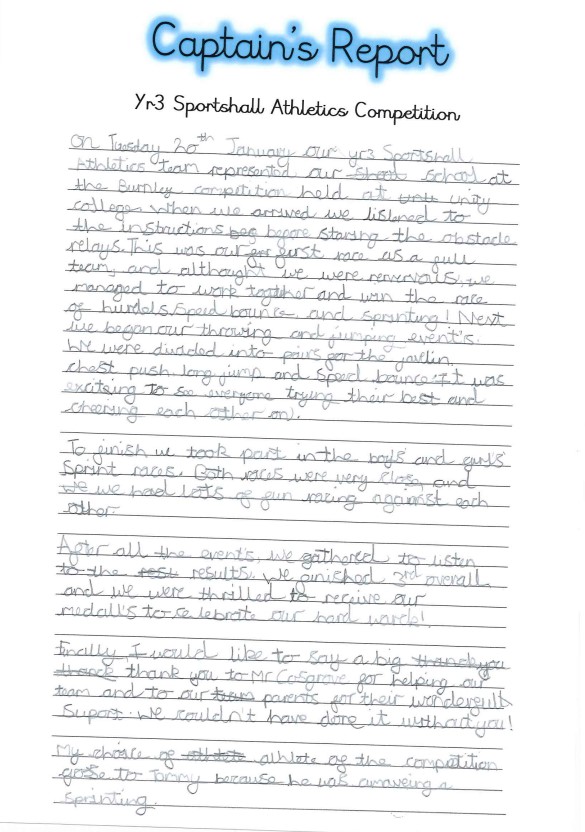 Captain's Report
Yr3 Sportshall Athletics Competition
On Tuesday 20th January our yr3 Sportshall
Athletics team represented our school at
the Burnley competition held at unity
colleges. When we arrived we listened to
the instructions beg before starting the obstacle
relays. This was our first race as a full
team, and althought we were nervervous, we
managed to work togther and win the race
of hurdels, Speed bounce, and sprinting! Next
we began our throwing and jumping event's.
We were divided into pairs for the javlin,
chest push, long jump and Speed bounce. It was
exciteing to see everyone trying their best and
cheering each other on!.
To finish we took part in the boy's and gurl's
Sprint races. Both races were very close and
we we had lotts of fun racing againist each
other.
After all the event's, we gathered to listen
to the results. We finished 3rd overall
and we were thrilled to receive our
medall's to selebrate our hard warck!
Finally, I would like to say a big thank you
thank you to Mr Cosgrove for helping our
team and to our parents for their wonderfull
Suport. We couldn't have done it without you!
My choice of athlete of the competition
goese to Tommy because he was amaveing a
sprinting.